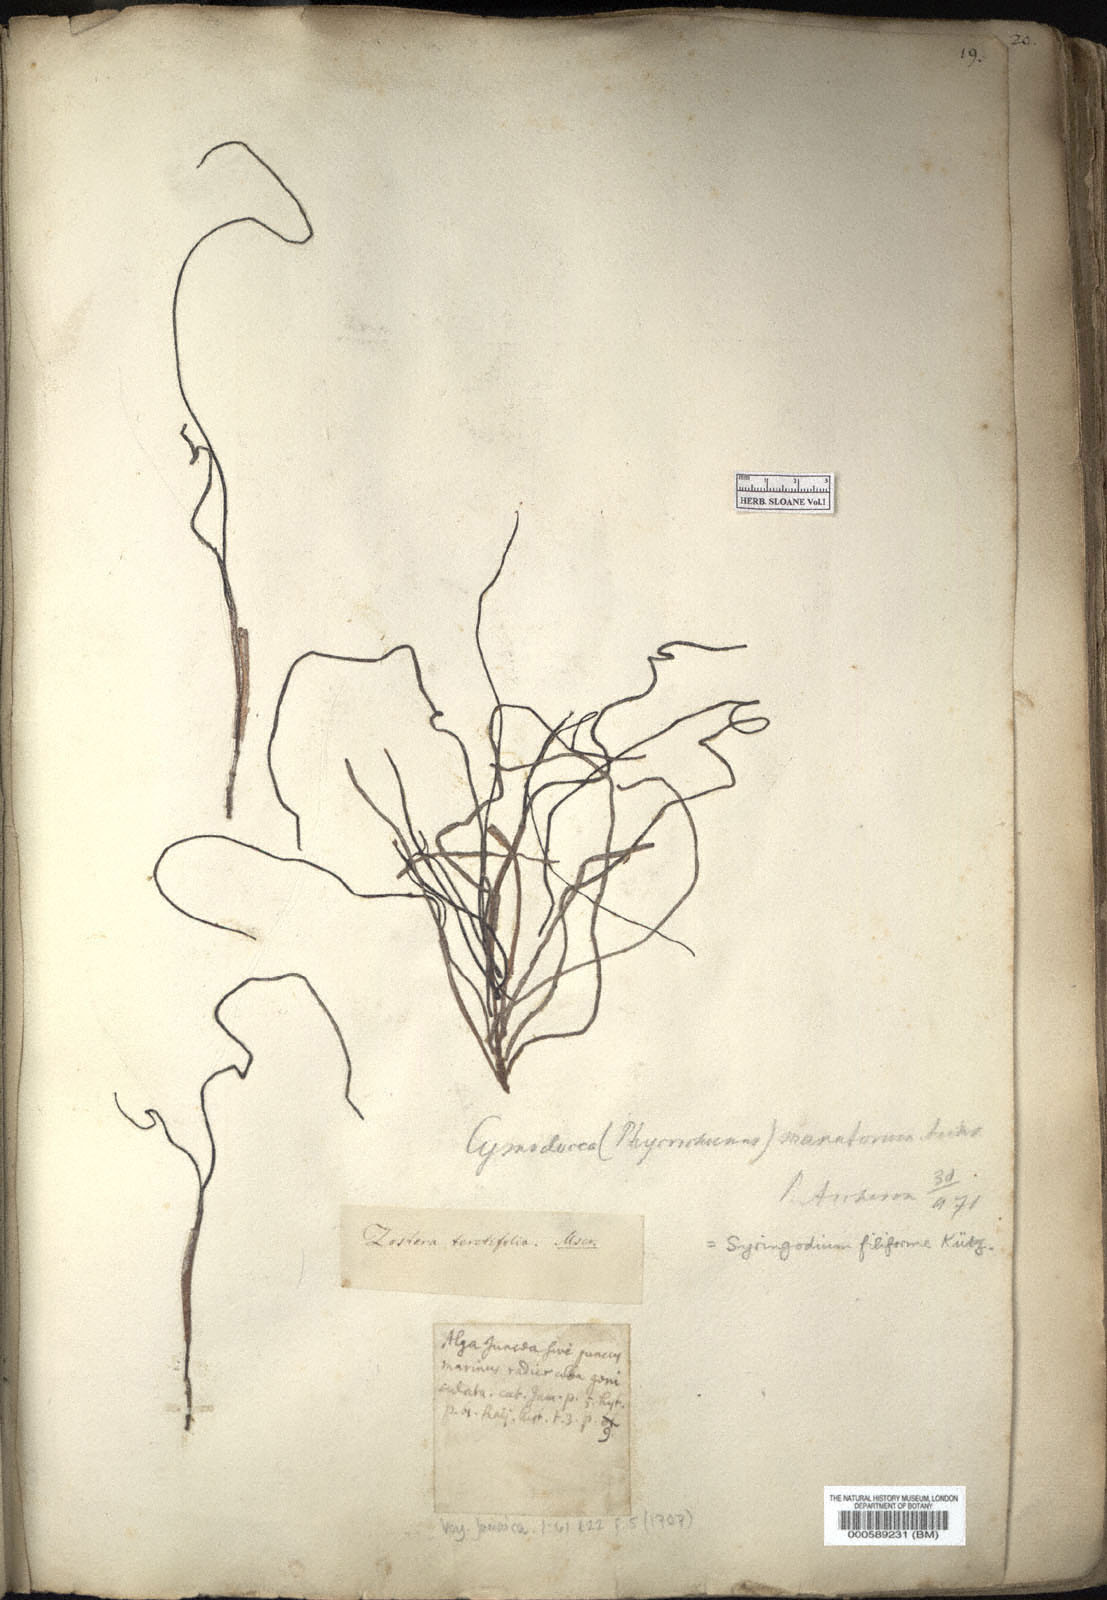 19.
20.
mm 1 2 3
HERB. SLOANE Vol.1
Cymodocea (Phycoschoenus) manatorum
P. Ascherson 30/9 71
= Syringodium filiforme Kütz.
Zostera teretifolia. Mscr.
Alga Juncea sive juncus
marinus radice alba geni
culata. cat. Jam. p. 5. hist.
p. 61. Raij. hist. t. 3. p. 9
Voy. Jamaica. 1. 61 t.22 f.5 (1707)
THE NATURAL HISTORY MUSEUM, LONDON
DEPARTMENT OF BOTANY
000589231 (BM)